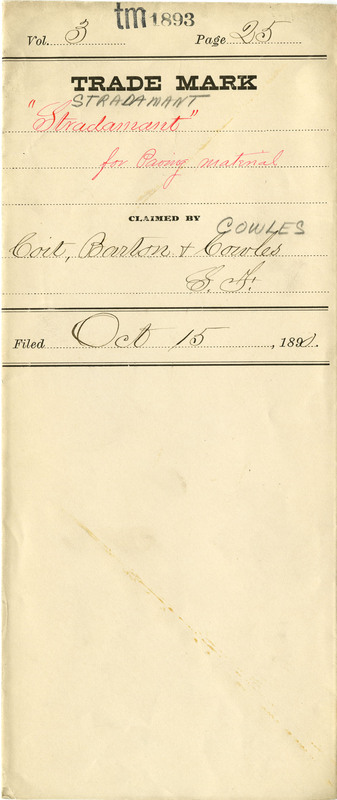 tm 1893
Vol. 3 Page 25
TRADE MARK
STRADAMANT
"Stradamant"
for Paving material
CLAIMED BY
COWLES
Coit, Barton & Cowles
S. F.
Filed Oct 15, 189